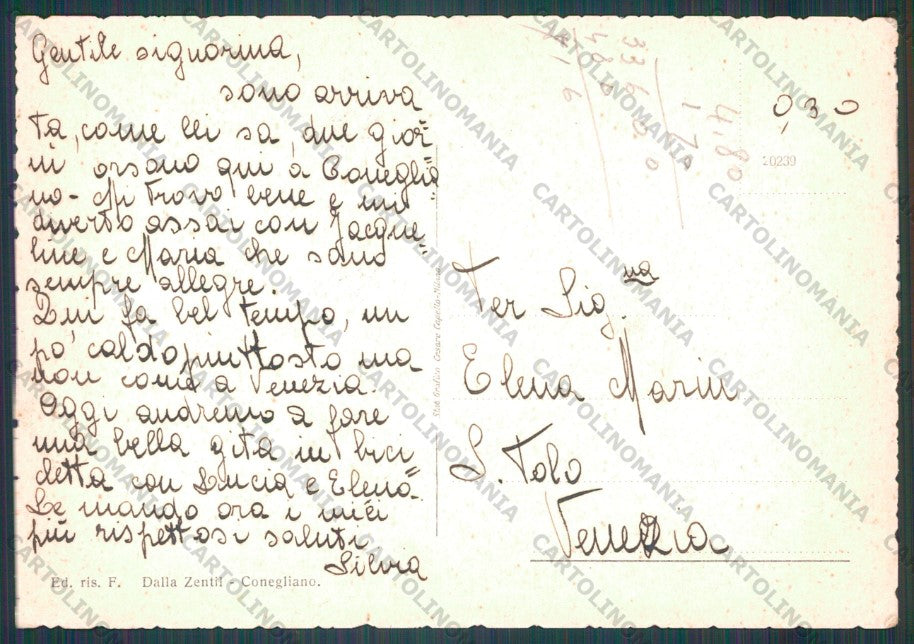 Gentile signorina,
sono arriva
ta, come lei sa, due gior=
ni orsono qui a Coneglia=
no - Mi trovo bene e mi
diverto assai con Jacque=
line e Maria che sono
sempre allegre.
Qui fa bel tempo, un
po' caldo piuttosto ma
non come a Venezia.
Oggi andremo a fare
una bella gita in bici
cletta con Lucia e Elena.
Le mando ora i miei
più rispettosi saluti
Silvia
Ed. ris. F. Dalla Zentil - Conegliano.
Stab. Grafico Cesare Capello-Milano
33600
480
1,70
4,80
0,30
20239
Per Sig.na
Elena Marin
S. Polo
Venezia
CARTOLINOMANIA